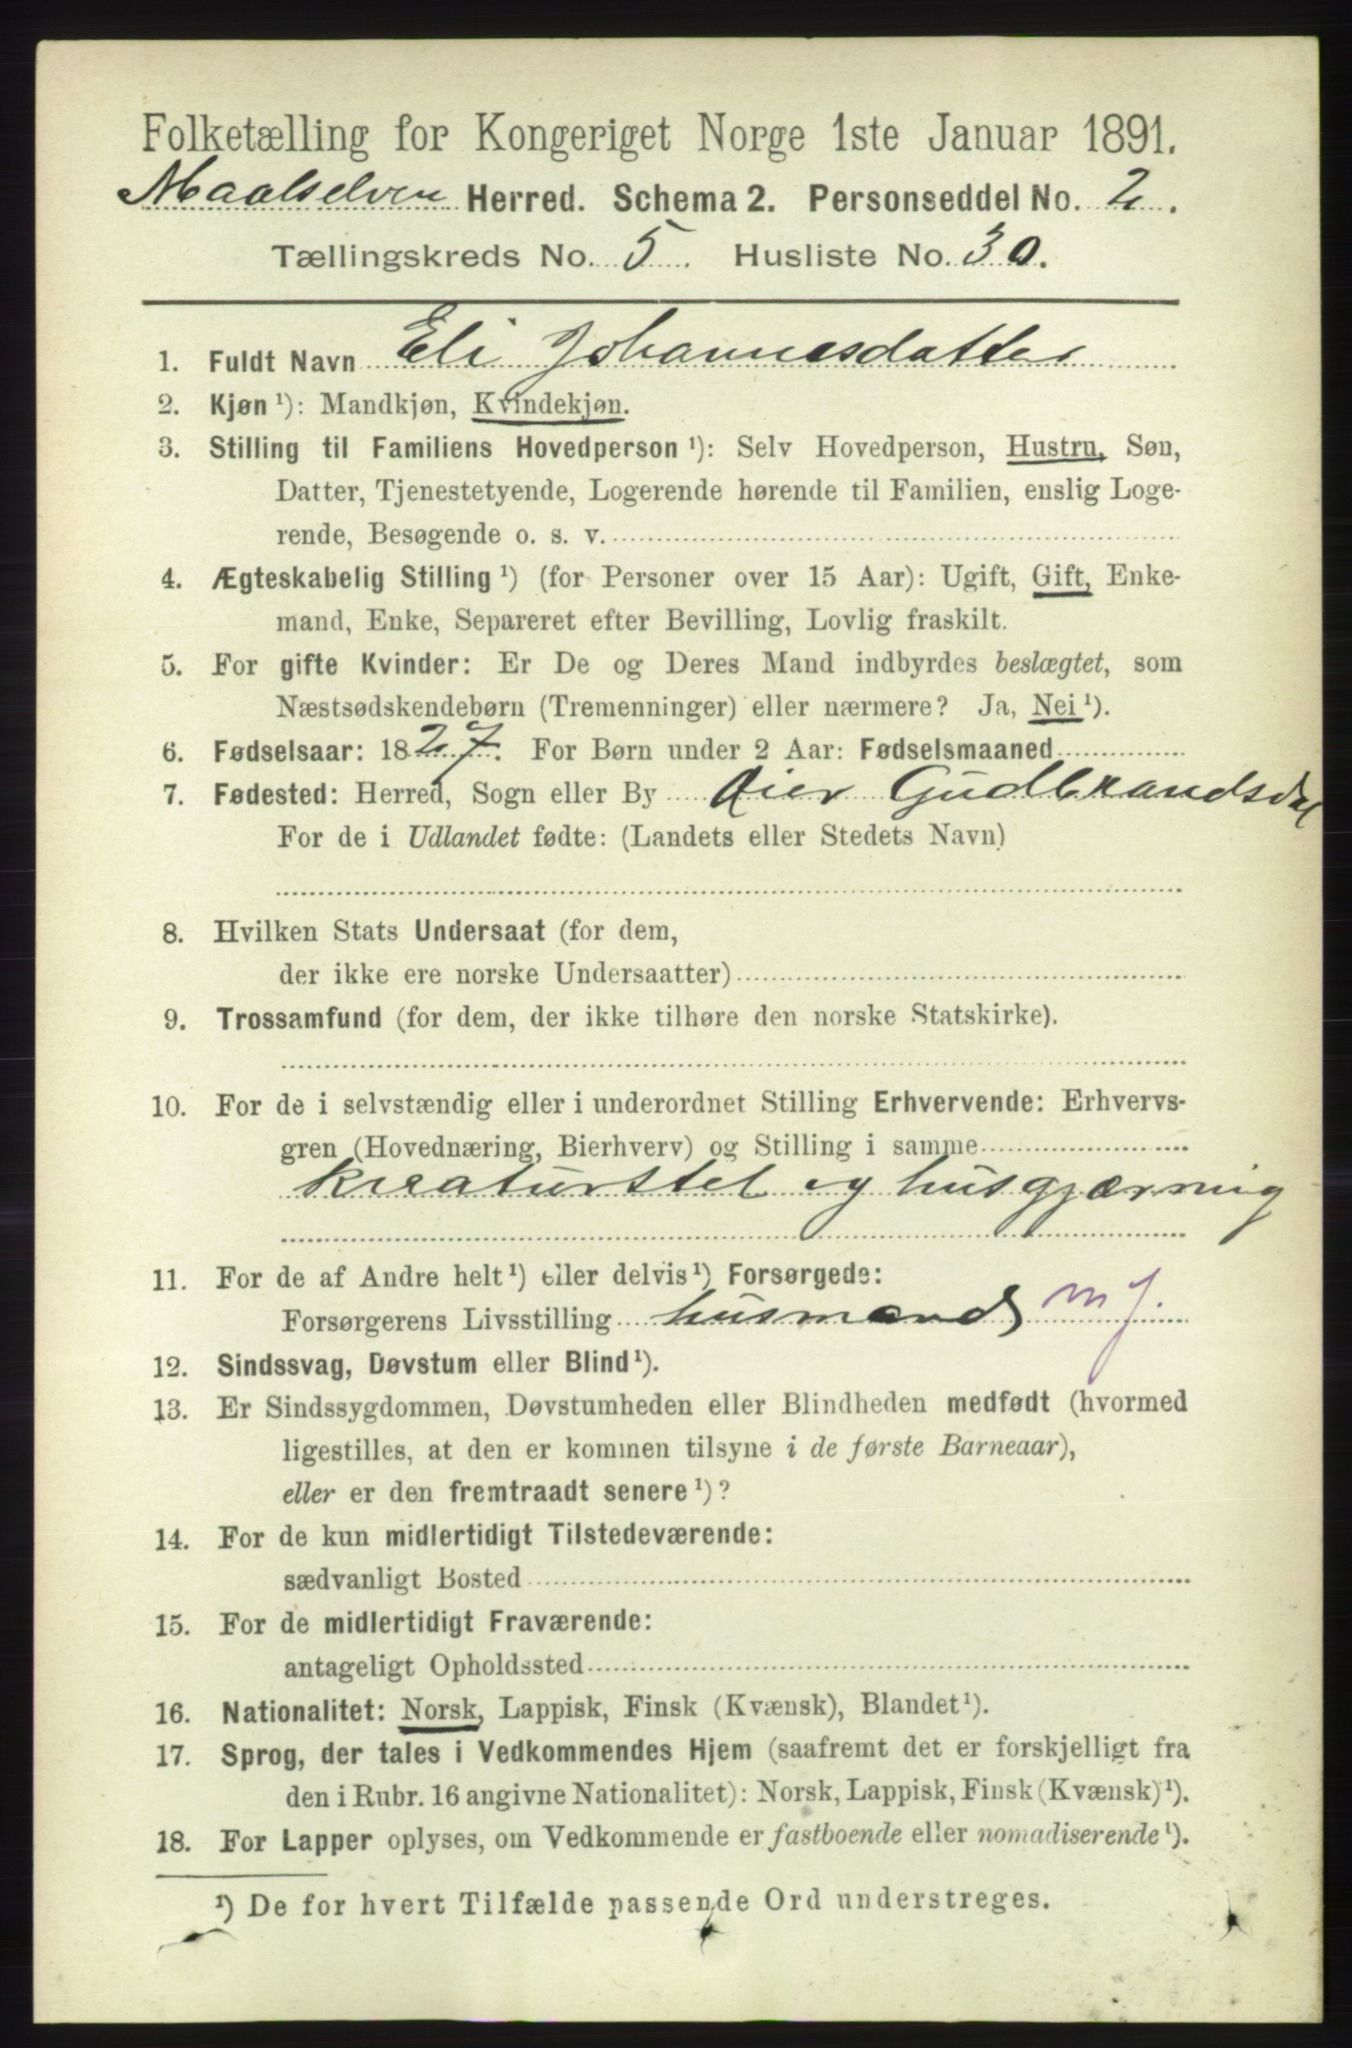 Folketælling for Kongeriget Norge 1ste Januar 1891.
Maalselven Herred. Schema 2. Personseddel No. 2.
Tællingskreds No. 5. Husliste No. 30.
1. Fuldt Navn Eli Johannesdatter
2. Kjøn ¹): Mandkjøn, Kvindekjøn.
3. Stilling til Familiens Hovedperson ¹): Selv Hovedperson, Hustru, Søn,
Datter, Tjenestetyende, Logerende hørende til Familien, enslig Loge-
rende, Besøgende o. s. v.
4. Ægteskabelig Stilling ¹) (for Personer over 15 Aar): Ugift, Gift, Enke-
mand, Enke, Separeret efter Bevilling, Lovlig fraskilt.
5. For gifte Kvinder: Er De og Deres Mand indbyrdes beslægtet, som
Næstsødskendebørn (Tremenninger) eller nærmere? Ja, Nei ¹).
6. Fødselsaar: 1827. For Børn under 2 Aar: Fødselsmaaned
7. Fødested: Herred, Sogn eller By Øier Gudbrandsdal
For de i Udlandet fødte: (Landets eller Stedets Navn)
8. Hvilken Stats Undersaat (for dem,
der ikke ere norske Undersaatter)
9. Trossamfund (for dem, der ikke tilhøre den norske Statskirke).
10. For de i selvstændig eller i underordnet Stilling Erhvervende: Erhvervs-
gren (Hovednæring, Bierhverv) og Stilling i samme
kreaturstel og husgjærning
11. For de af Andre helt ¹) eller delvis ¹) Forsørgede:
Forsørgerens Livsstilling husmand m J.
12. Sindssvag, Døvstum eller Blind ¹).
13. Er Sindssygdommen, Døvstumheden eller Blindheden medfødt (hvormed
ligestilles, at den er kommen tilsyne i de første Barneaar),
eller er den fremtraadt senere ¹)?
14. For de kun midlertidigt Tilstedeværende:
sædvanligt Bosted
15. For de midlertidigt Fraværende:
antageligt Opholdssted
16. Nationalitet: Norsk, Lappisk, Finsk (Kvænsk), Blandet ¹).
17. Sprog, der tales i Vedkommendes Hjem (saafremt det er forskjelligt fra
den i Rubr. 16 angivne Nationalitet): Norsk, Lappisk, Finsk (Kvænsk) ¹).
18. For Lapper oplyses, om Vedkommende er fastboende eller nomadiserende ¹).
¹) De for hvert Tilfælde passende Ord understreges.